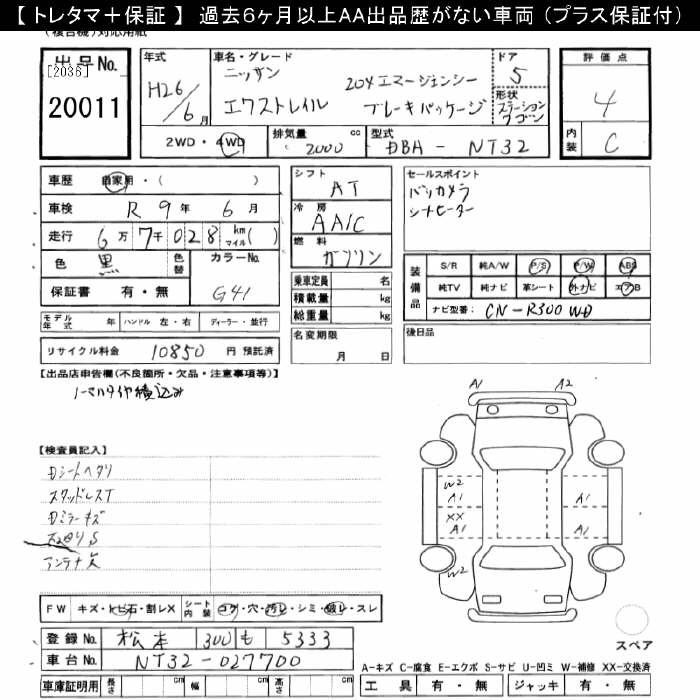 【 トレタマ＋保証 】 過去6ヶ月以上AA出品歴がない車両 (プラス保証付)
(複合機)対応用紙
出品No.
[2036]
20011
年式
H26/6月
車名・グレード
ニッサン
エクストレイル
20X エマージェンシー
ブレーキパッケージ
ドア
5
形状
ステーションワゴン
評価点
4
内装
C
2WD・4WD
排気量
2000 cc
型式
DBA - NT32
車歴 自家用・( )
車検 R 9年 6月
走行 6万 7千 028 km マイル( )
色 黒 色替 カラーNo.
G41
保証書 有・無
シフト
AT
冷房
AAC
燃料
ガソリン
乗車定員 名
積載量 kg
総重量 kg
セールスポイント
バックカメラ
シートヒーター
装備品
S/R 純A/W P/S P/W ABS
純TV 純ナビ 革シート 外ナビ エアB
ナビ型番： CN-R300WD
モデル年式 年 ハンドル 左・右 ディーラー・並行
名変期限
月 日
後日品
リサイクル料金 10850 円 預託済
【出品店申告欄(不良箇所・欠品・注意事項等)】
ノーマルタイヤ積込み
【検査員記入】
Dシートヘタリ
スタッドレスT
Dミラーキズ
S
アンテナ欠
A1 A2
W2
A1 A1
XX
A1 A1
W2
スペア
FW キズ・トビ石・割レX シート内装 コゲ・穴・汚レ・シミ・破レ・スレ
登録No. 松本 300 も 5333
車台No. NT32-027700
車庫証明用 長さ cm 幅 cm 高さ cm
A-キズ C-腐食 E-エクボ S-サビ U-凹ミ W-補修 XX-交換済
工具 有・無 ジャッキ 有・無